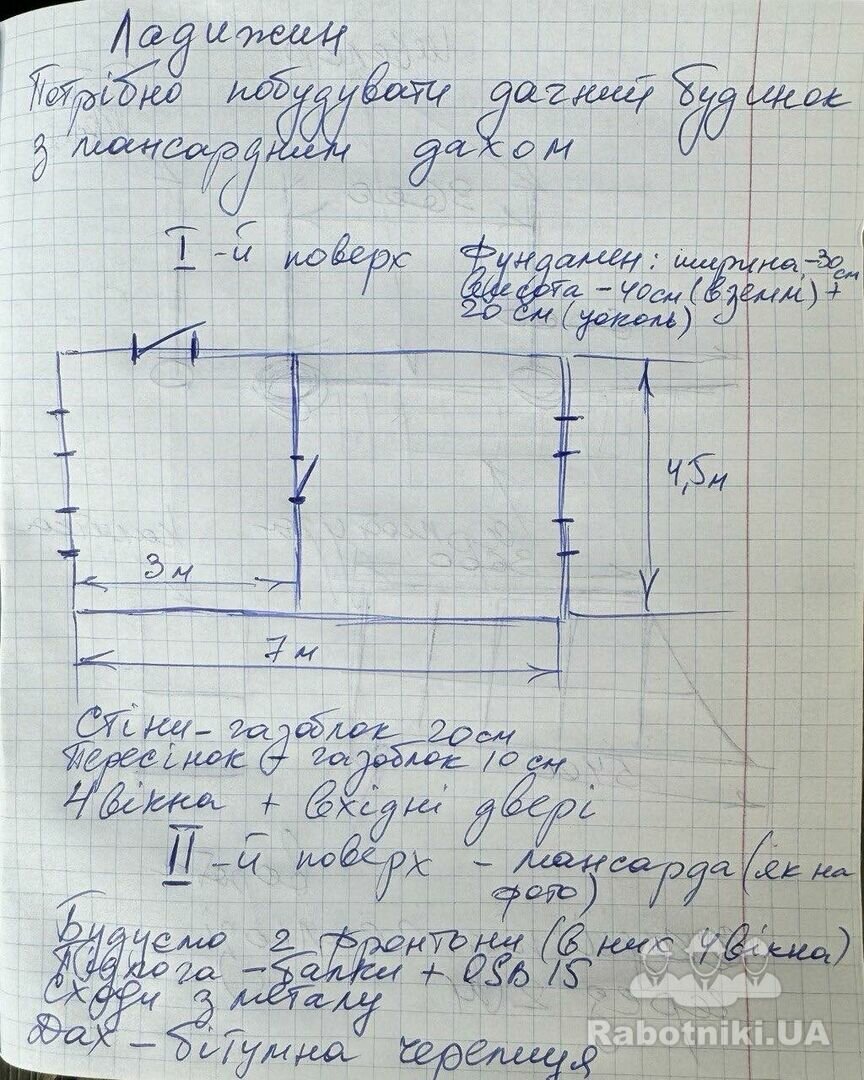 Ладижин
Потрібно побудувати дачний будинок
з мансардним дахом
I-й поверх
Фундамен: ширина -30 см
висота - 40см (в земл) +
20 см (цоколь)
4,5м
3 м
7 м
Стіни - газоблок 20см
Пересінок - газоблок 10 см
4 вікна + вхідні двері
II-й поверх - мансарда (як на
фото)
Будуємо 2 фронтони (в них 4 вікна)
Підлога - балки + OSB 15
Сходи з металу
Дах - бітумна черепиця
Rabotniki.UA